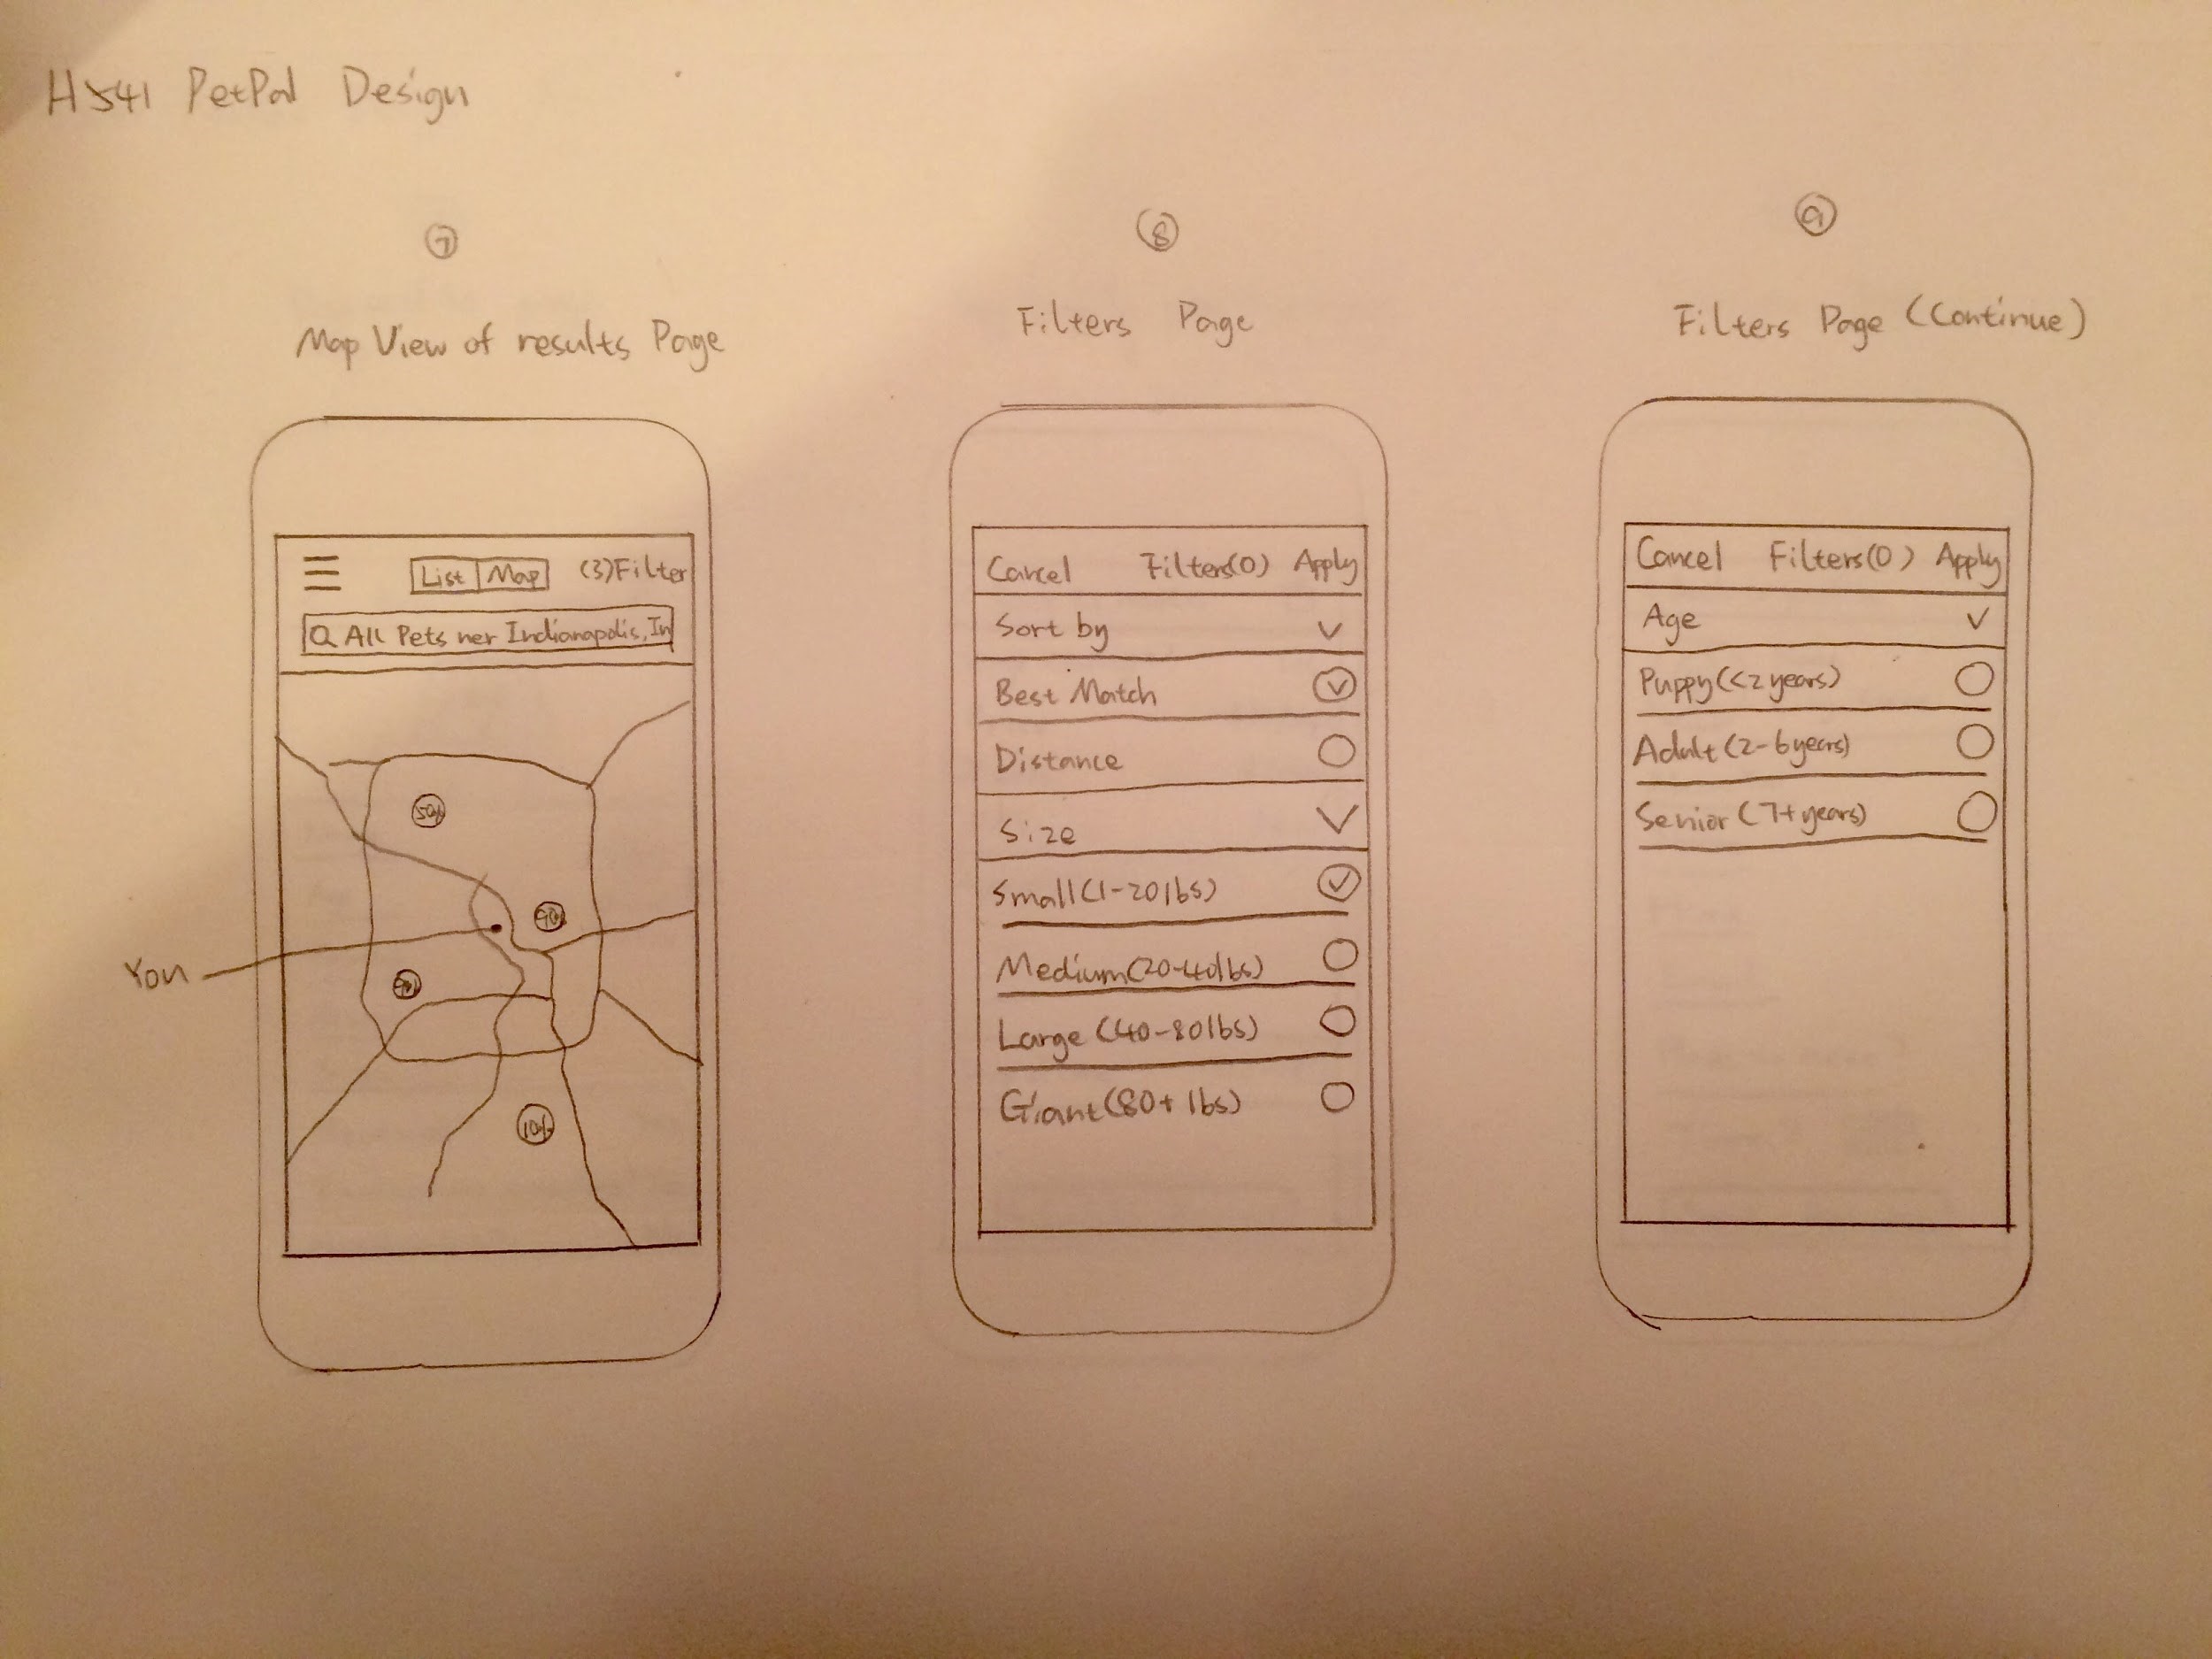 H541 PetPal Design
7
Map View of results Page
List Map (3)Filter
All Pets ner Indianapolis, In
50%
90%
You
10%
8
Filters Page
Cancel Filters(0) Apply
Sort by
Best Match
Distance
Size
Small(1-20lbs)
Medium(20-40lbs)
Large (40-80lbs)
Giant(80+ lbs)
9
Filters Page (Continue)
Cancel Filters(0) Apply
Age
Puppy(<2years)
Adult(2-6years)
Senior(7+years)